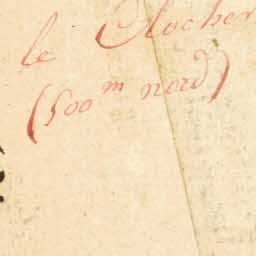 le Clocher
(500m nord)